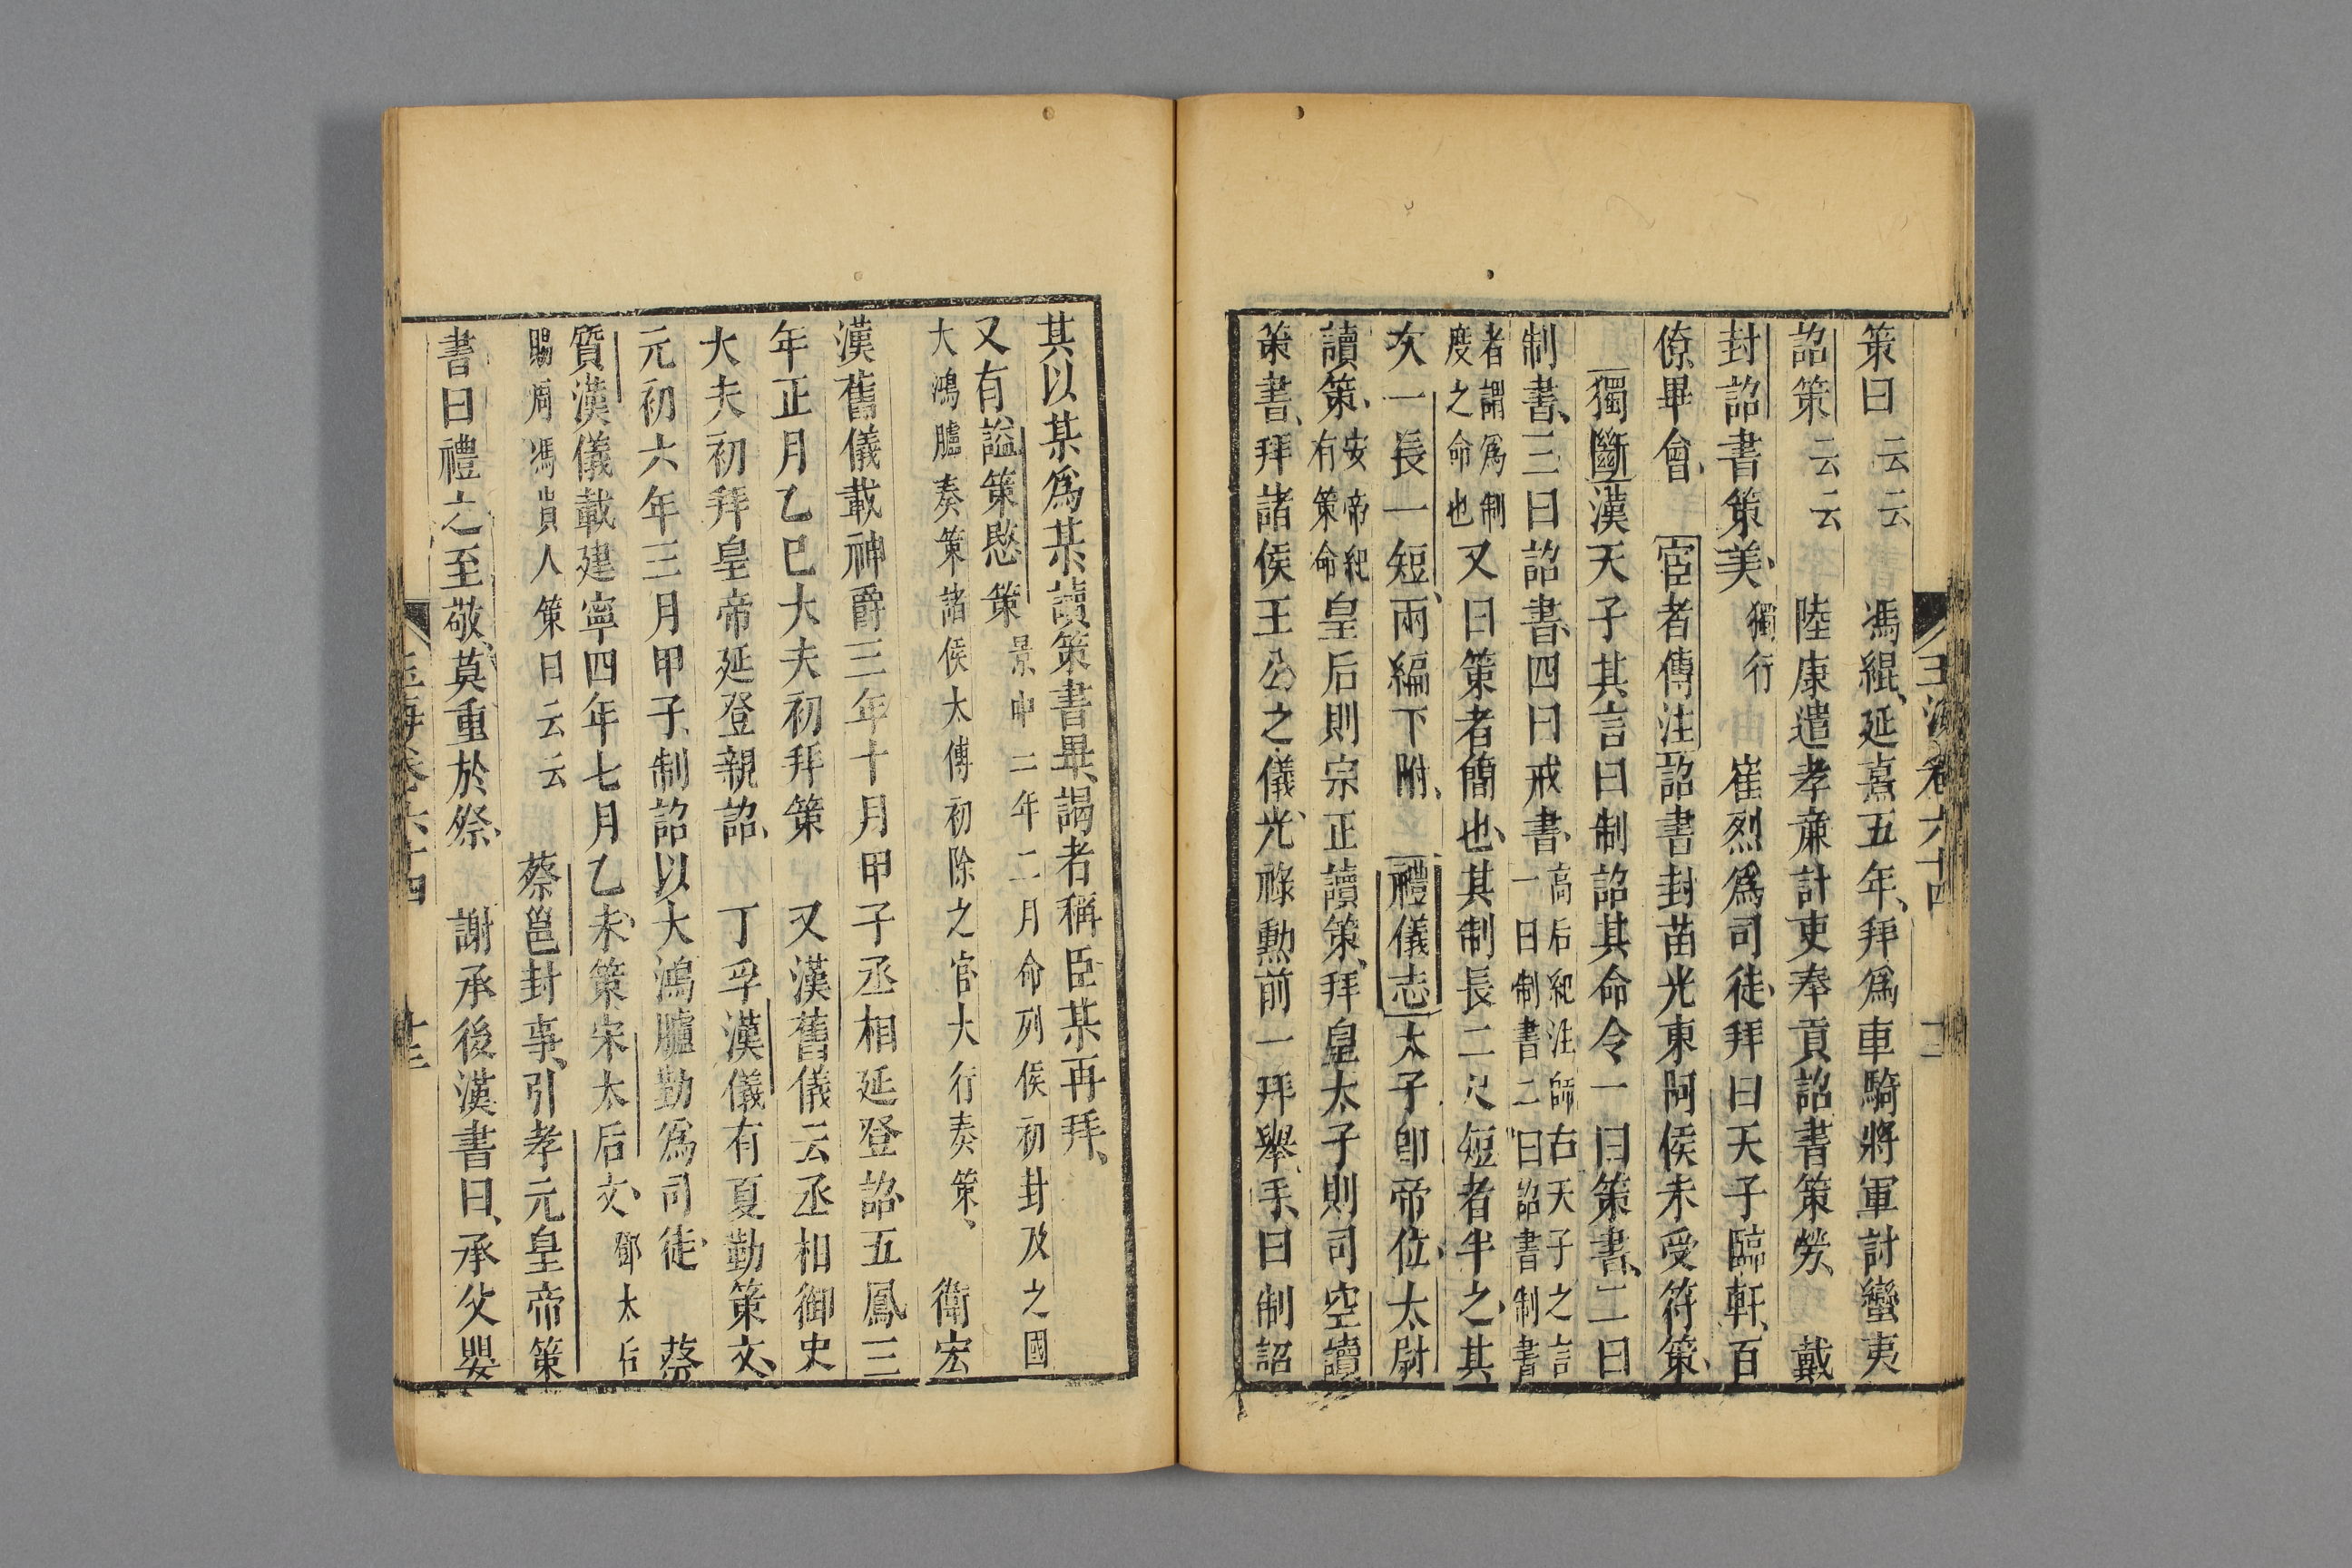 玉海卷六十四 十二
策曰云云 馮緄延熹五年拜爲車騎將軍討蠻夷
詔策云云 陸康遣孝廉計吏奉貢詔書策勞 戴
封詔書策美獨行 崔烈爲司徒拜曰天子臨軒百
僚畢會 宦者傳注詔書封苗光東阿侯未受符策
獨斷漢天子其言曰制詔其命令一曰策書二曰
制書三曰詔書四曰戒書高后紀注師古天子之言一曰制書二曰詔書制書
者謂爲制度之命也又曰策者簡也其制長二尺短者半之其
次一長一短兩編下附 禮儀志太子即帝位太尉
讀策安帝紀有策命皇后則宗正讀策拜皇太子則司空讀
策書拜諸侯王公之儀光祿勳前一拜舉手曰制詔
其以某爲某讀策書畢謁者稱臣某再拜
又有謚策愍策景中二年二月命列侯初封及之國
大鴻臚奏策諸侯太傅初除之官大行奏策 衛宏
漢舊儀載神爵三年十月甲子丞相延登詔五鳳三
年正月乙巳大夫初拜策 又漢舊儀云丞相御史
大夫初拜皇帝延登親詔 丁孚漢儀有夏勤策文
元初六年三月甲子制詔以大鴻臚勤爲司徒 蔡
質漢儀載建寧四年七月乙未策宋太后文鄧太后
賜周馮貴人策曰云云 蔡邕封事引孝元皇帝策
書曰禮之至敬莫重於祭 謝承後漢書曰承父嬰
玉海卷六十四 十三